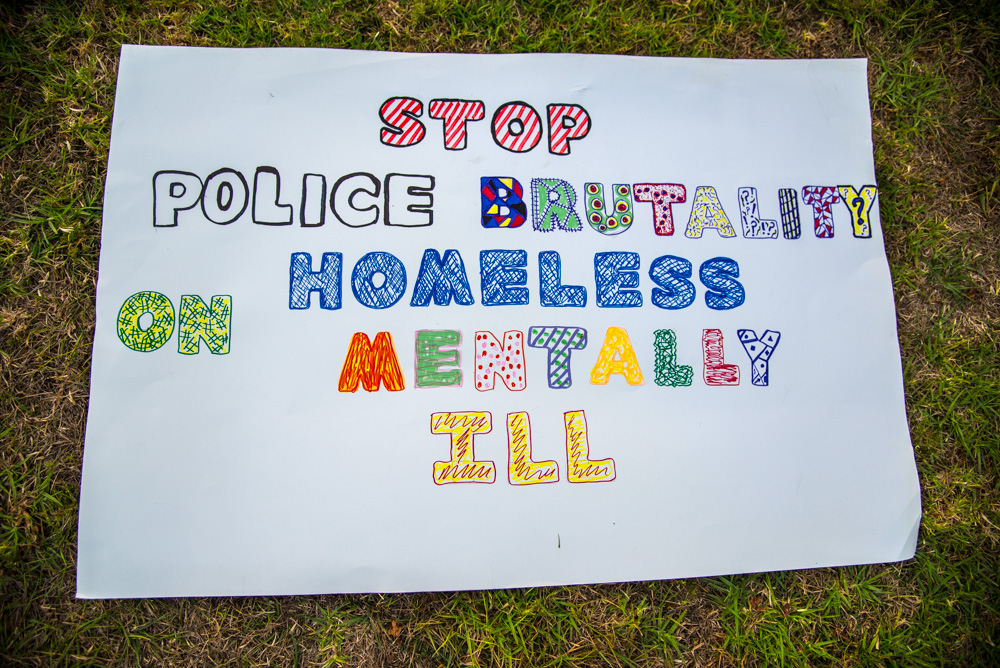 STOP
POLICE BRUTALITY
ON HOMELESS
MENTALLY
ILL